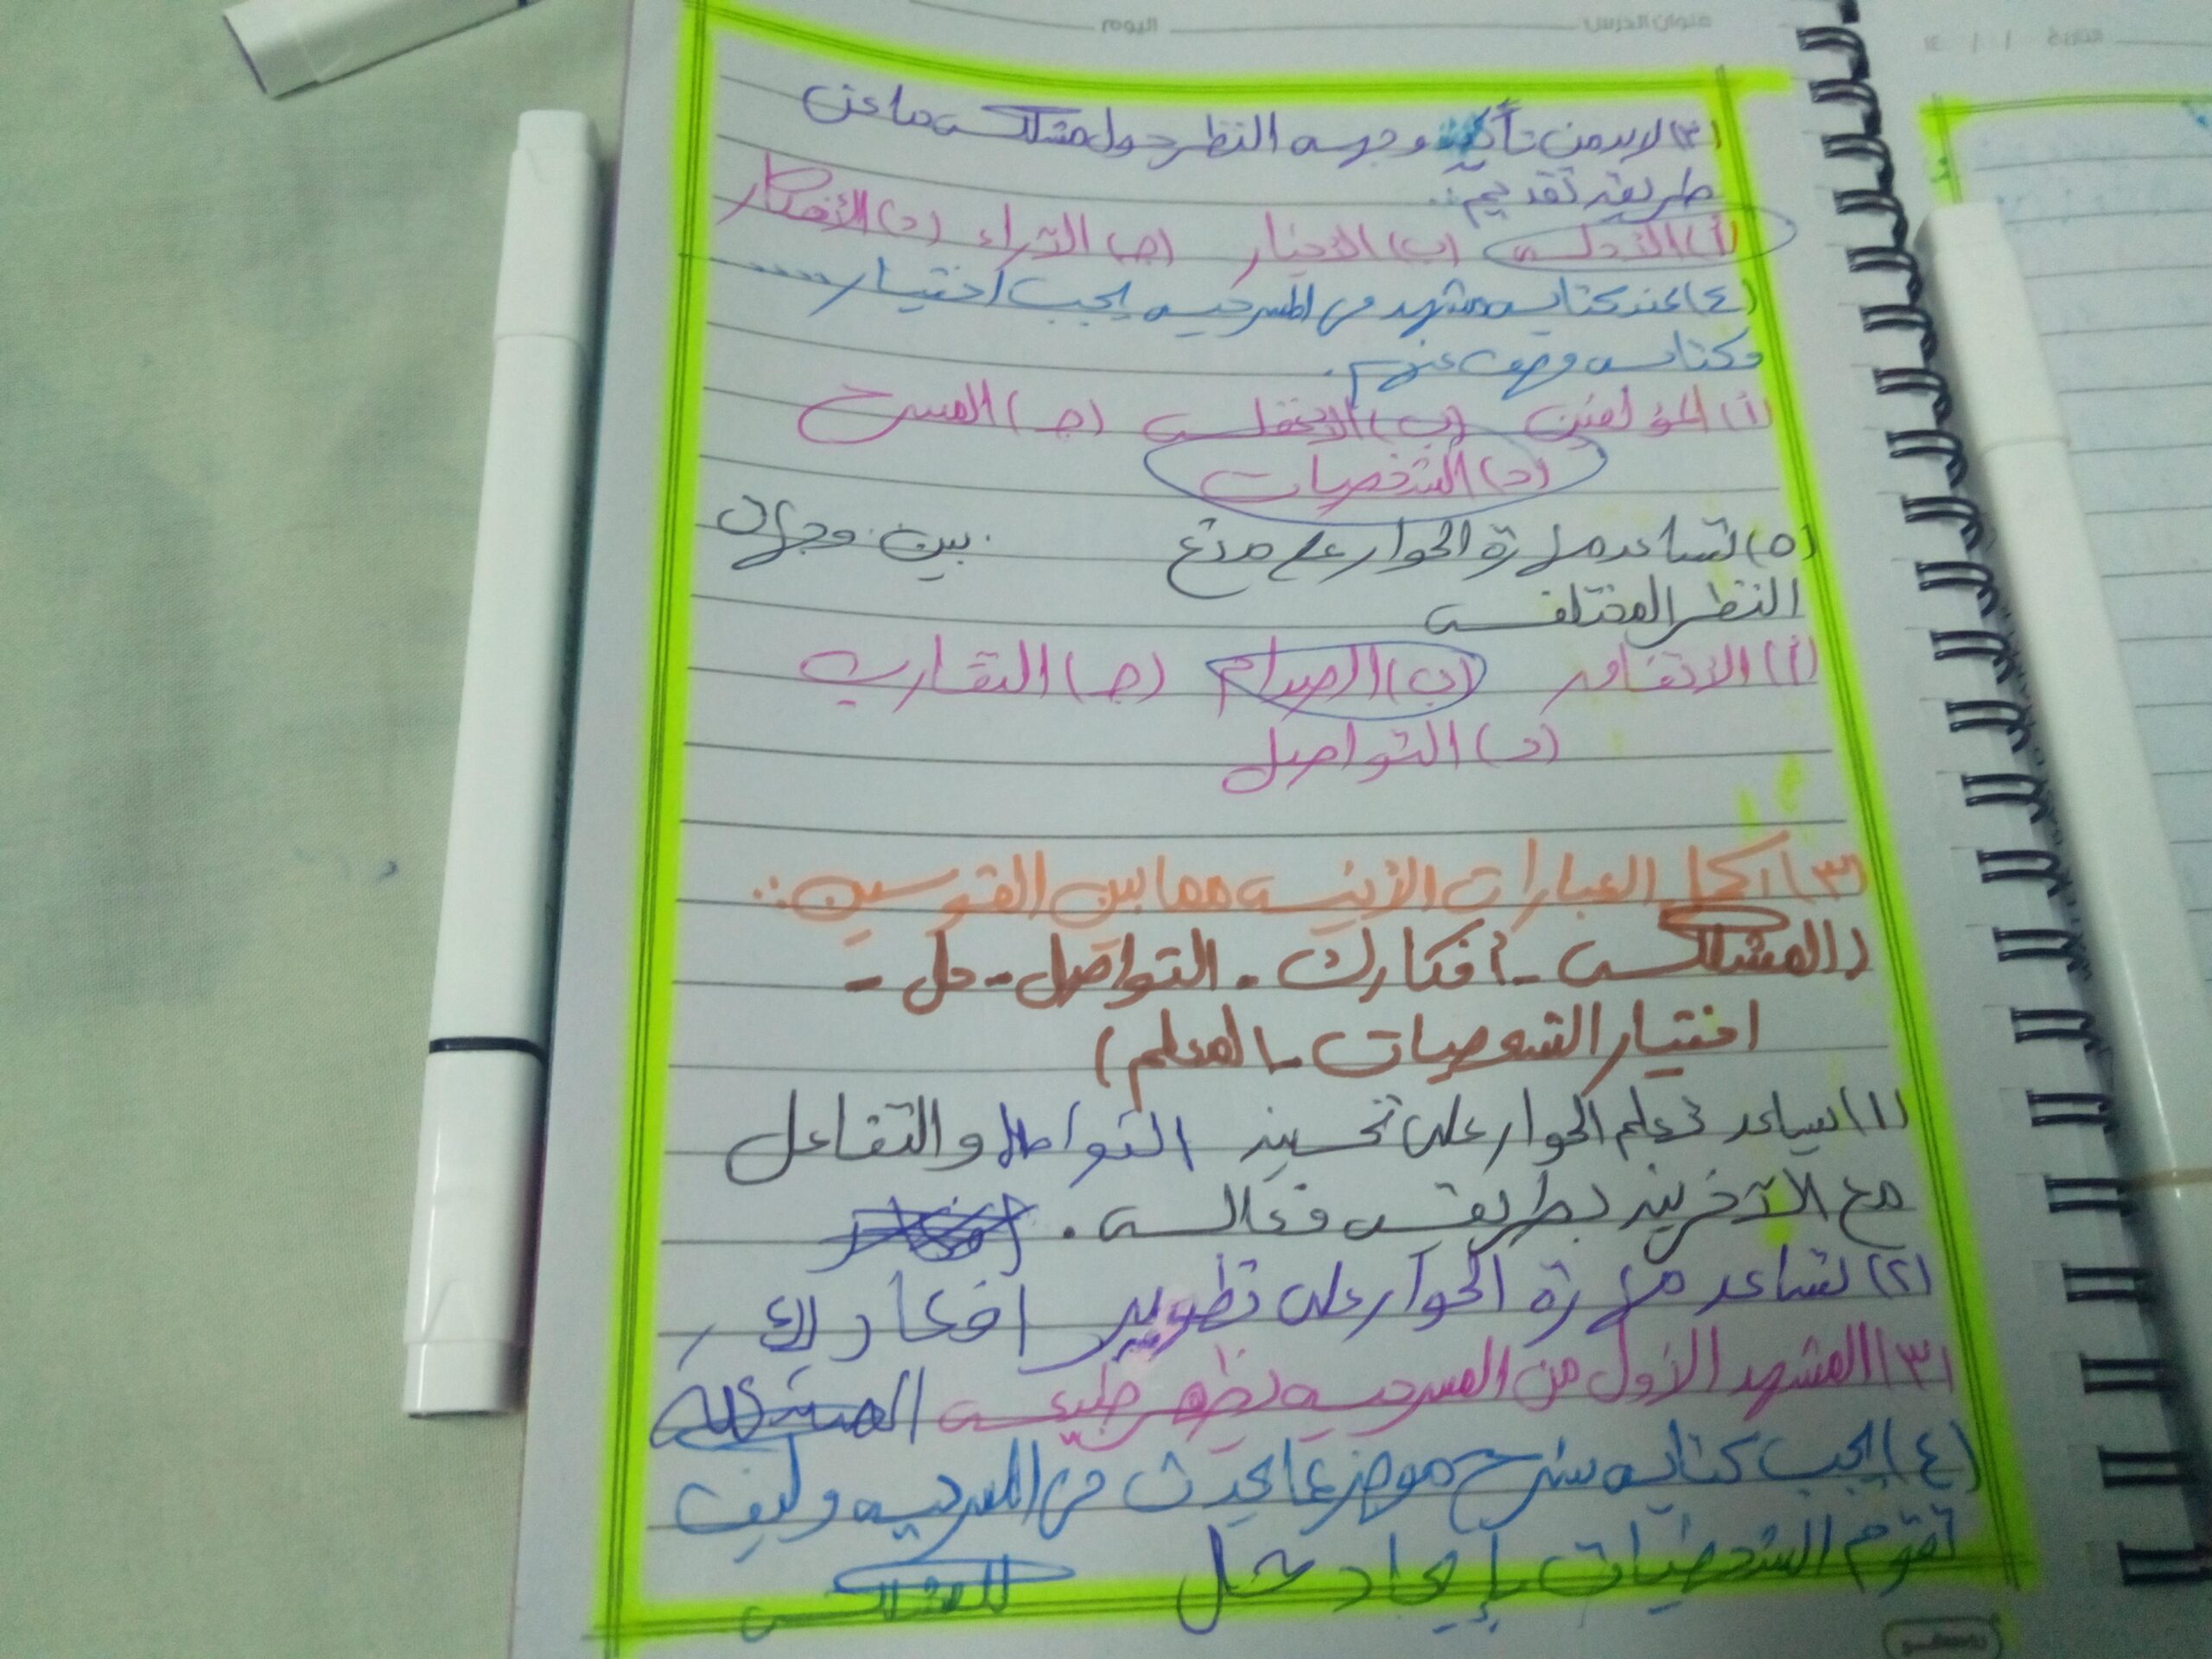 عنوان الدرس اليوم
(٣) لابد من تأكيد وجهه النظر حول مشكله ما عن
طريقه تقديم:.
(أ) الأدله (ب) الاخبار (جـ) الآراء (د) الأفكار
(٤) عند كتابه مشهد من المسرحيه يجب اختيار .....
وكتابه وصف عنهم.
(أ) المؤلفين (ب) الاختله (جـ) المسرح
(د) الشخصيات
(٥) تساعد مهارة الحوار على منع بين وجهات
النظر المختلفه
(أ) الاتفاق (ب) الصدام (جـ) التقارب
(د) التواصل
(٣) أكمل العبارات الأتيه مما بين القوسين:.
(المشكله - أفكارك - التواصل - حل -
اختيار الشخصيات - المعلم)
(١) يساعد تعلم الحوار على تحسين التواصل والتفاعل
مع الآخرين بطريقه فعاله.
(٢) تساعد مهارة الحوار على تطوير افكارك
(٣) المشهد الأول من المسرحيه يظهر طبيعه المشكله
(٤) يجب كتابه شرح موجز عما يحدث في المسرحيه وكيف
تقوم الشخصيات بإيجاد حل للمشكله